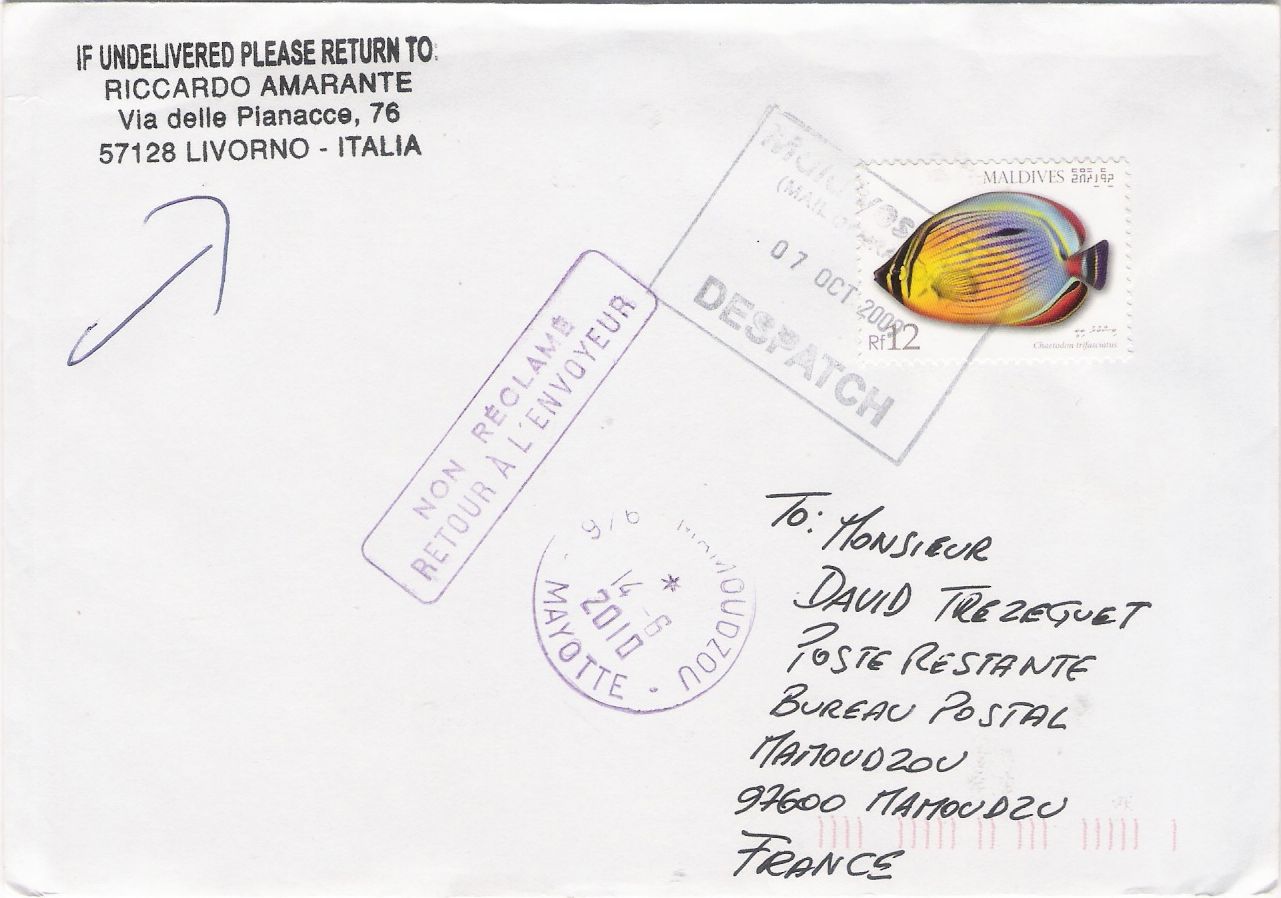 IF UNDELIVERED PLEASE RETURN TO:
RICCARDO AMARANTE
Via delle Pianacce, 76
57128 LIVORNO - ITALIA
MALDIVES
Rf12
Chaetodon trifasciatus
(MAIL
07 OCT 2009
DESPATCH
NON RÉCLAMÉ
RETOUR À L'ENVOYEUR
976 MAMOUDZOU
14 -6
2010
MAYOTTE
To: MONSIEUR
DAVID TREZEGUET
POSTE RESTANTE
BUREAU POSTAL
MAMOUDZOU
97600 MAMOUDZU
FRANCE